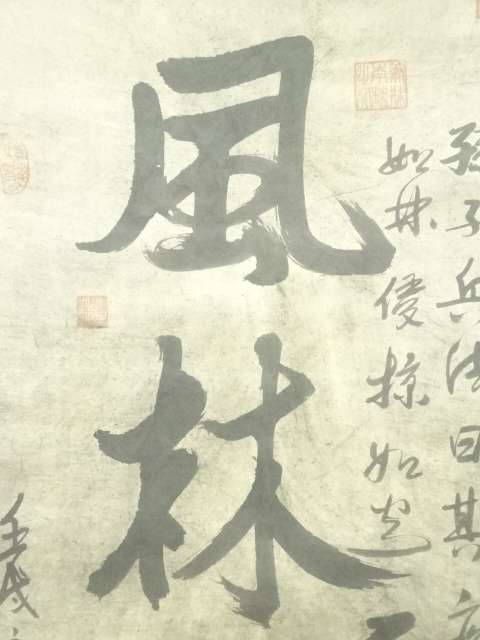 孫子兵法曰其
如林侵掠如
風林
壬戌